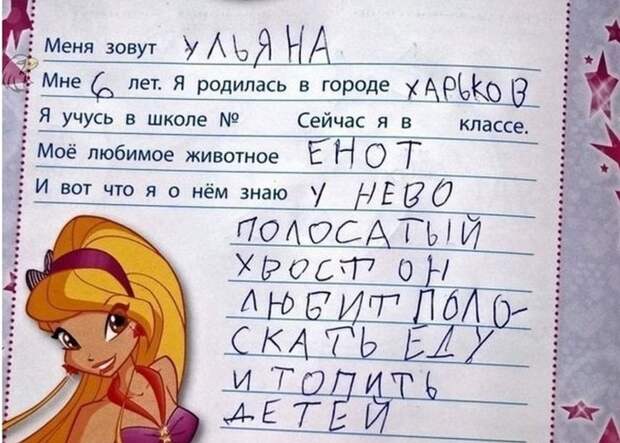 Меня зовут УЛЬЯНА
Мне 6 лет. Я родилась в городе ХАРЬКОВ
Я учусь в школе № Сейчас я в классе.
Моё любимое животное ЕНОТ
И вот что я о нём знаю У НЕВО
ПОЛОСАТЫЙ
ХВОСТ ОН
ЛЮБИТ ПОЛО-
СКАТЬ ЕДУ
И ТОПИТЬ
ДЕТЕЙ